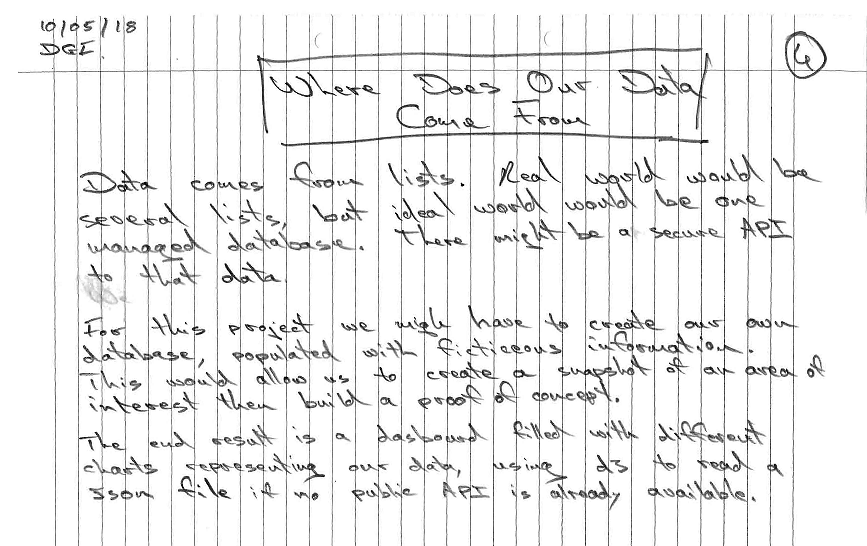 10/05/18
DGI.
4
Where Does Our Data
Come From
Data comes from lists. Real world would be
several lists, but ideal world would be one
managed database. There might be a secure API
to that data.
For this project we migh have to create our own
database, populated with ficticeous information.
This would allow us to create a snapshot of an area of
interest then build a proof of concept.
The end result is a dasboard filled with different
charts representing our data, using d3 to read a
Json file if no public API is already available.